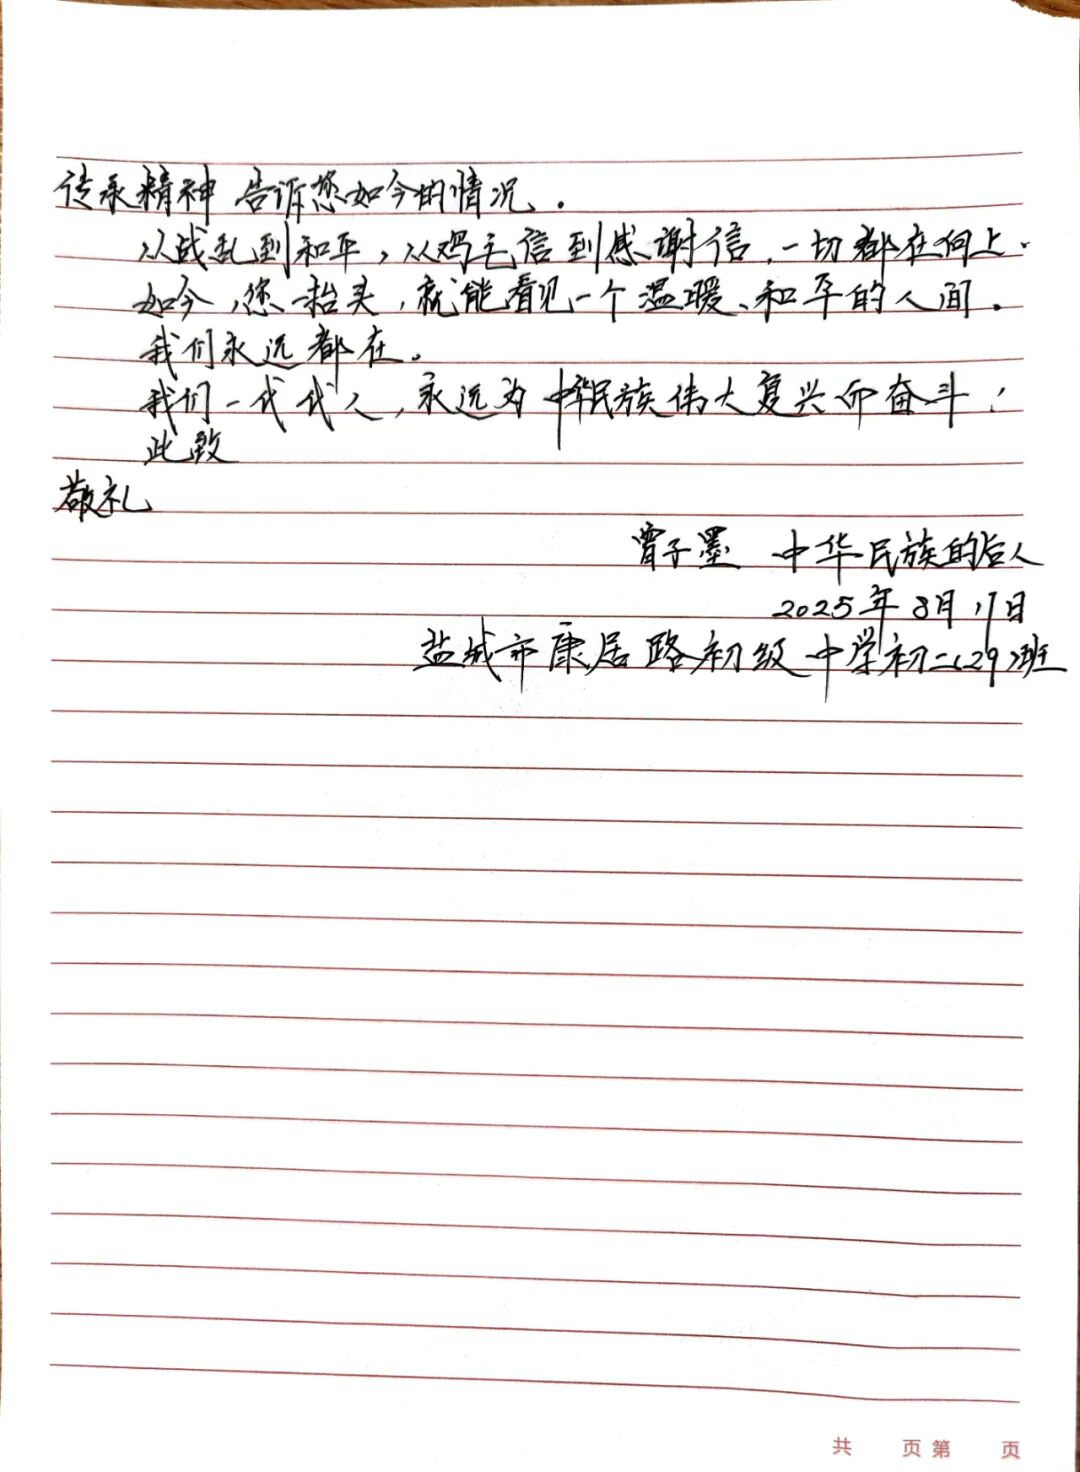 传承精神 告诉您如今的情况。
从战乱到和平，从鸡毛信到感谢信，一切都在向上。
如今，您一抬头，就能看见一个温暖、和平的人间。
我们永远都在。
我们一代代人，永远为中华民族伟大复兴而奋斗！
此致
敬礼
曾子墨 中华民族的后人
2025年8月17日
盐城市康居路初级中学初二(29)班
共 页 第 页